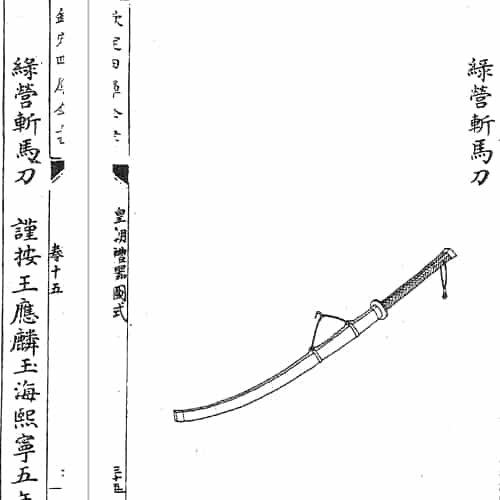 綠營斬馬刀
欽定四庫全書
皇朝禮器圖式
欽定四庫全書
卷十五
綠營斬馬刀 謹按王應麟玉海熙寧五年